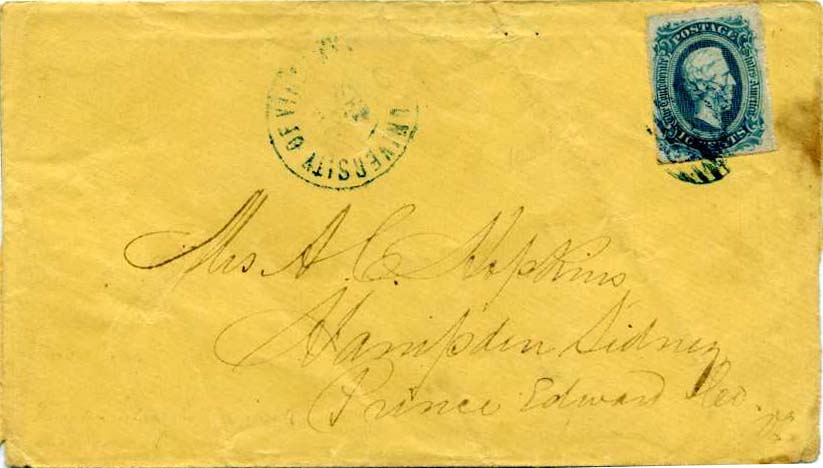 UNIVERSITY OF VA
POSTAGE
The Confederate States America
10 CENTS
Mrs A. C. Hopkins
Hampden Sidney
Prince Edward Co.
Va